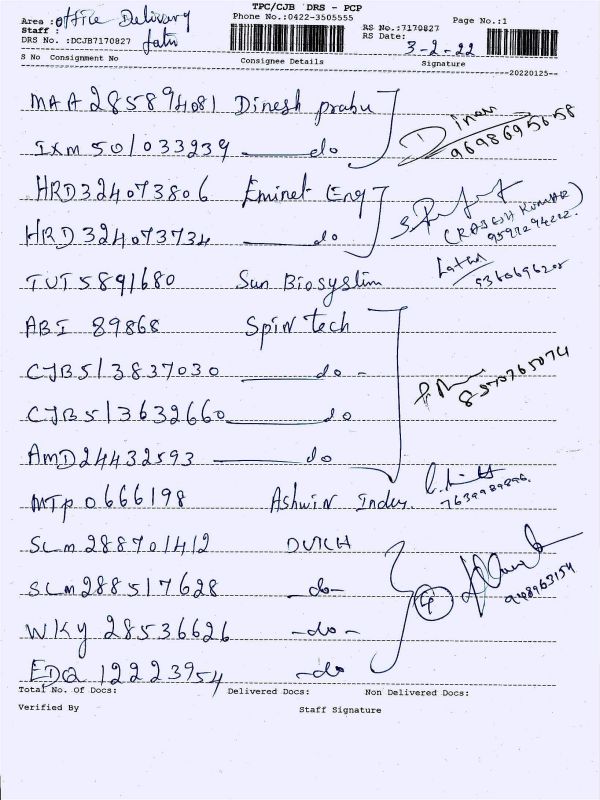 TPC/CJB DRS - PCP
Area : office Delivery Phone No.:0422-3505555 RS No.:7170827 Page No.:1
Staff : RS Date: 3-2-22
DRS No. :DCJB7170827
S No Consignment No Consignee Details Signature
--20220125--
MAA 285894081 Dinesh prabu
9698695658
IXM 501033239 do
HRD324073806 Eminet Eng
(RAJESH KUMAR)
HRD324073734 do
TUT5891680 Sun Biosystim Latha
ABI 89868 Spin tech
CJB513837030 do - 8570765074
CJB513632660 do
AMD24432593 do
MTP0666198 Ashwin Indus. 7639989896.
SLM288701412 DUTCH
SLM288517628 -do- 4 948963154
WKY 28536626 -do-
EDQ 12223954 -do
Total No. Of Docs: Delivered Docs: Non Delivered Docs:
Verified By Staff Signature